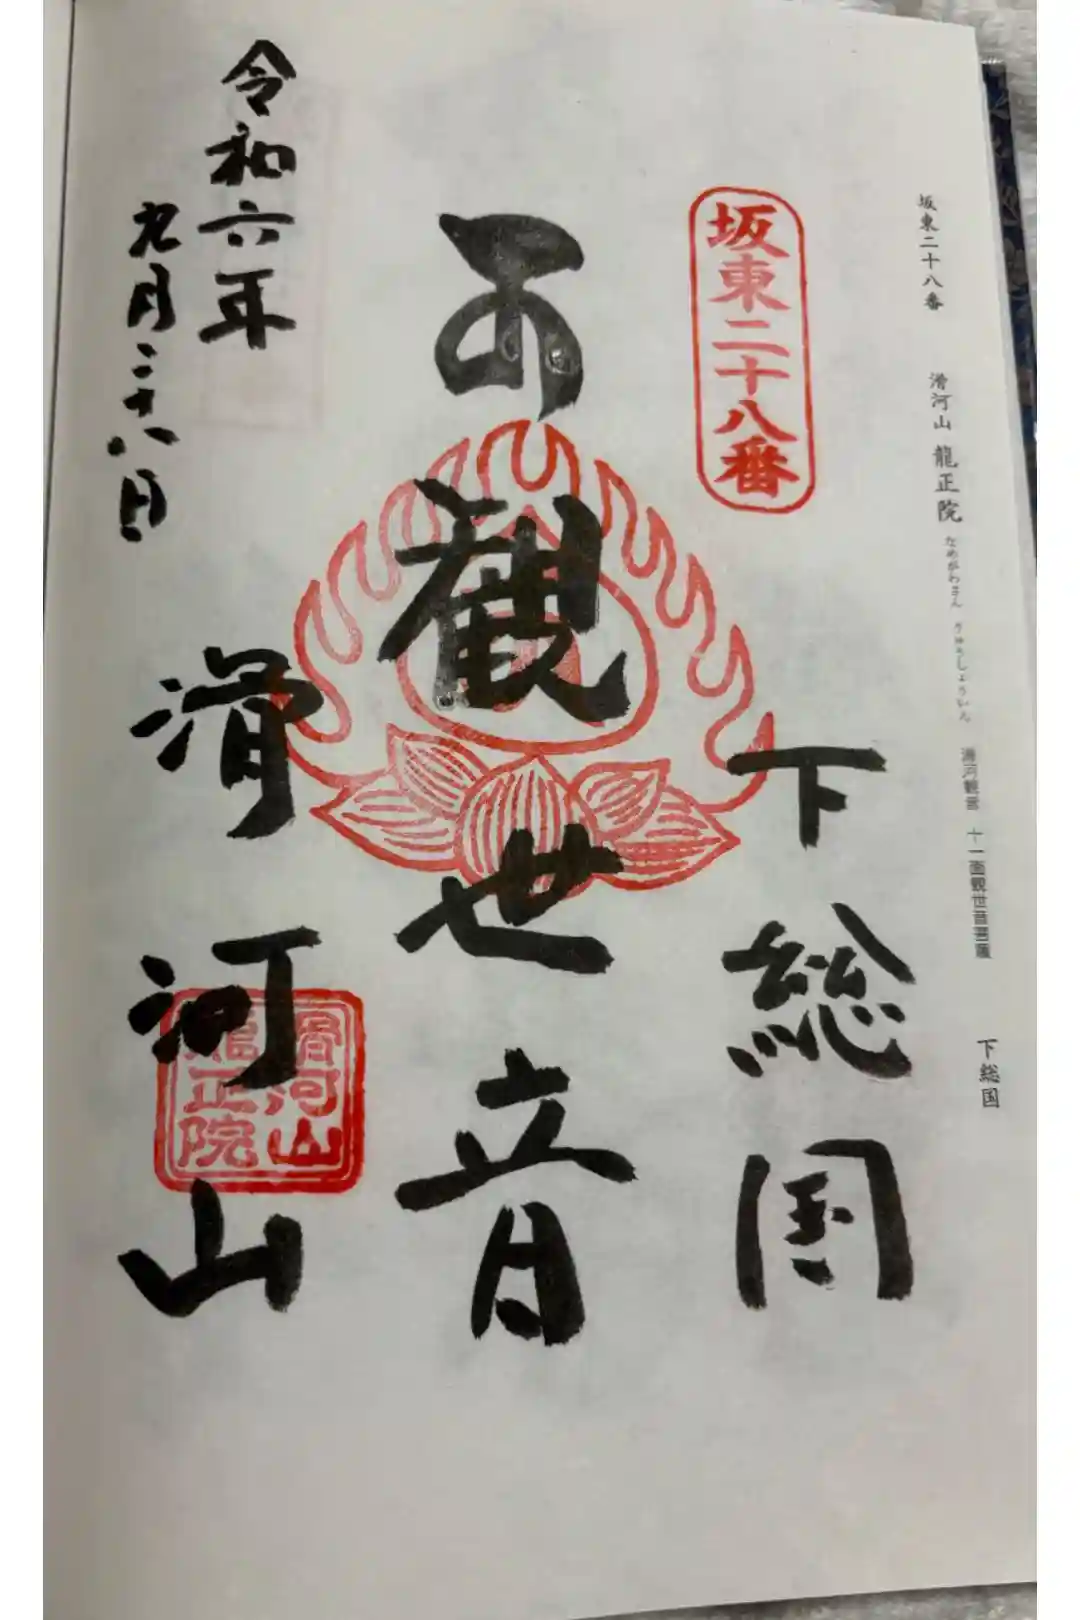 坂東二十八番 滑河山 龍正院 なめがわさん りゅうしょういん 滑河観音 十一面観世音菩薩 下総国
坂東二十八番
下総国
観世音
令和六年
九月二十八日
滑河山
滑河山
龍正院